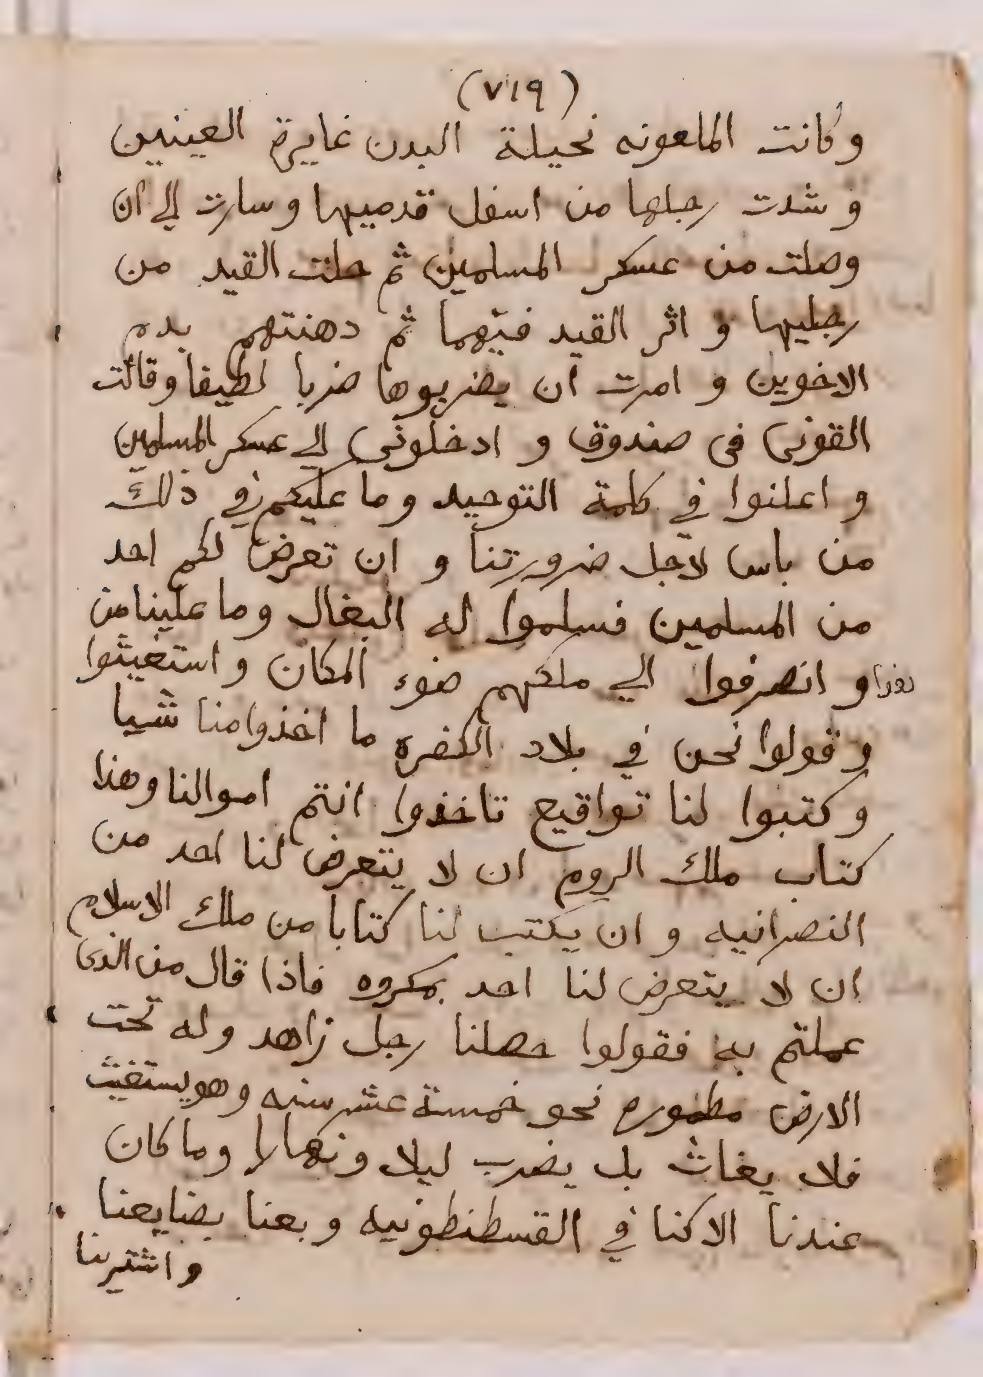 (٧١٩)
وكانت الملعونه نحيلة البدن غايرة العينين
و شدت رجلها من اسفل قدميها و سارت الي ان
وصلت من عسكر المسلمين ثم حلت القيد من
رجليها و اثر القيد فيهما ثم دهنتهم بدم
الاخوين و امرت ان يضربوها ضربا لطيفا وقالت
القوني في صندوق و ادخلوني الي عسكر المسلمين
و اعلنوا في كلمة التوحيد وما عليكم في ذلك
من باس لاجل ضرورتنا و ان تعرض لكم احد
من المسلمين فسلموا له البغال وما علينا من
و انصرفوا الي ملكهم ضوء المكان و استغيثوا
و قولوا نحن في بلاد الكفره ما اخذوا منا شيا
وكتبوا لنا تواقيع تاخذوا انتم اموالنا وهذا
كتاب ملك الروم ان لا يتعرض لنا احد من
النصرانيه و ان يكتب لنا كتابا من ملك الاسلام
ان لا يتعرض لنا احد بمكروه فاذا قال من الذي
عملتم به فقولوا حصلنا رجل زاهد وله تحت
الارض مطموره نحو خمسة عشر سنه وهو يستغيث
فلا يغاث بل يضرب ليلا ونهارا وما كان
عندنا الا كنا في القسطنطونيه و بعنا بضايعنا
واشترينا